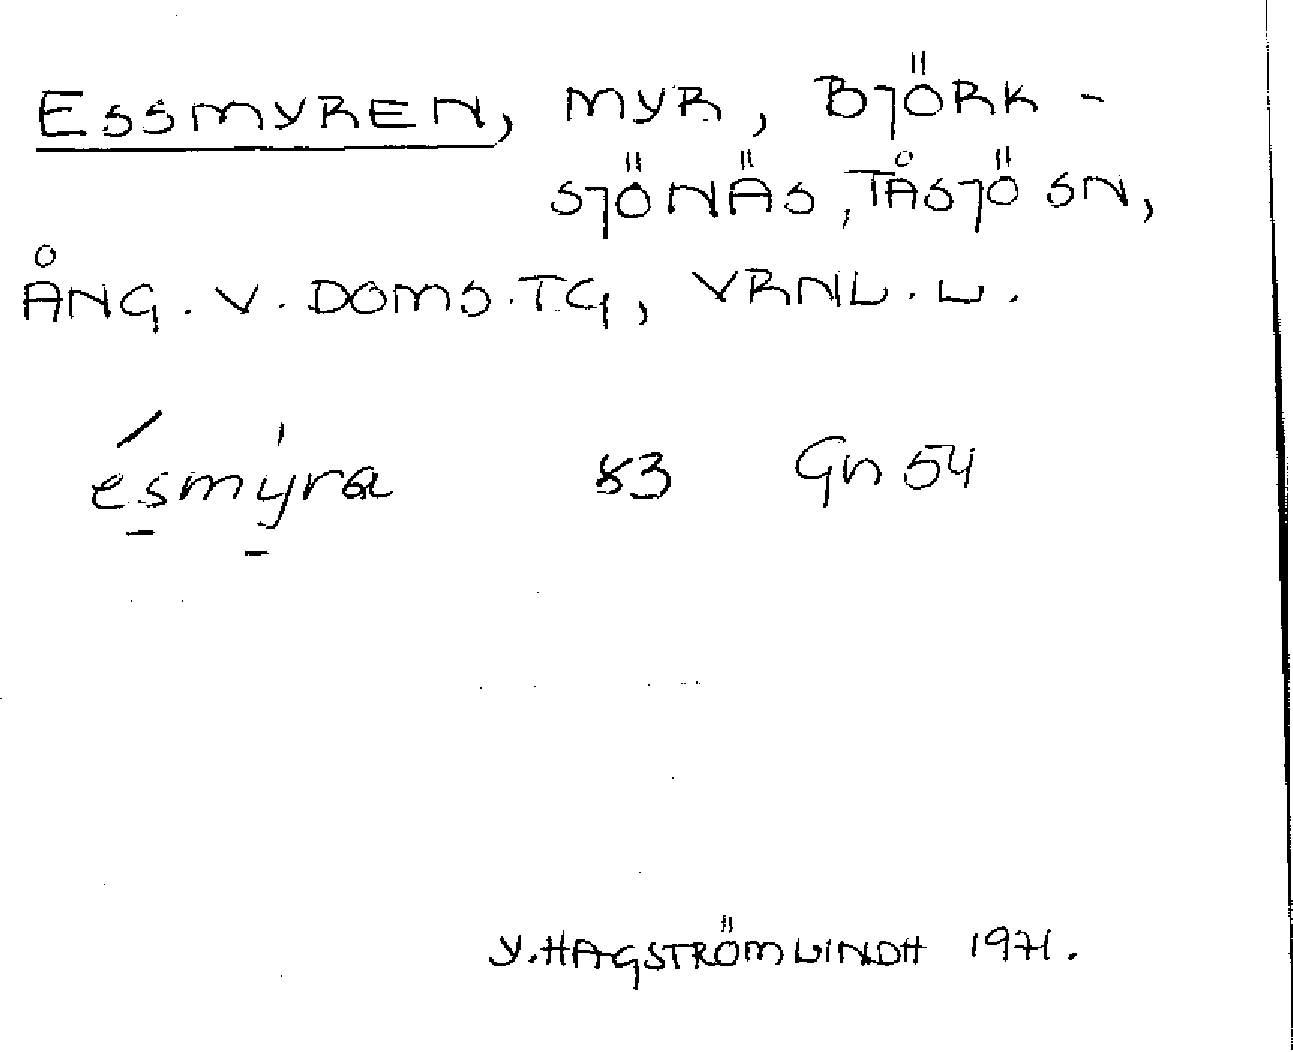 ESSMYREN, MYR, BJÖRK-
SJÖNÄS, TÅSJÖ SN,
ÅNG. V. DOMS.TG, VRNL. L.
ésmýra 83 Gn 54
Y. HAGSTRÖM LINDH 1971.